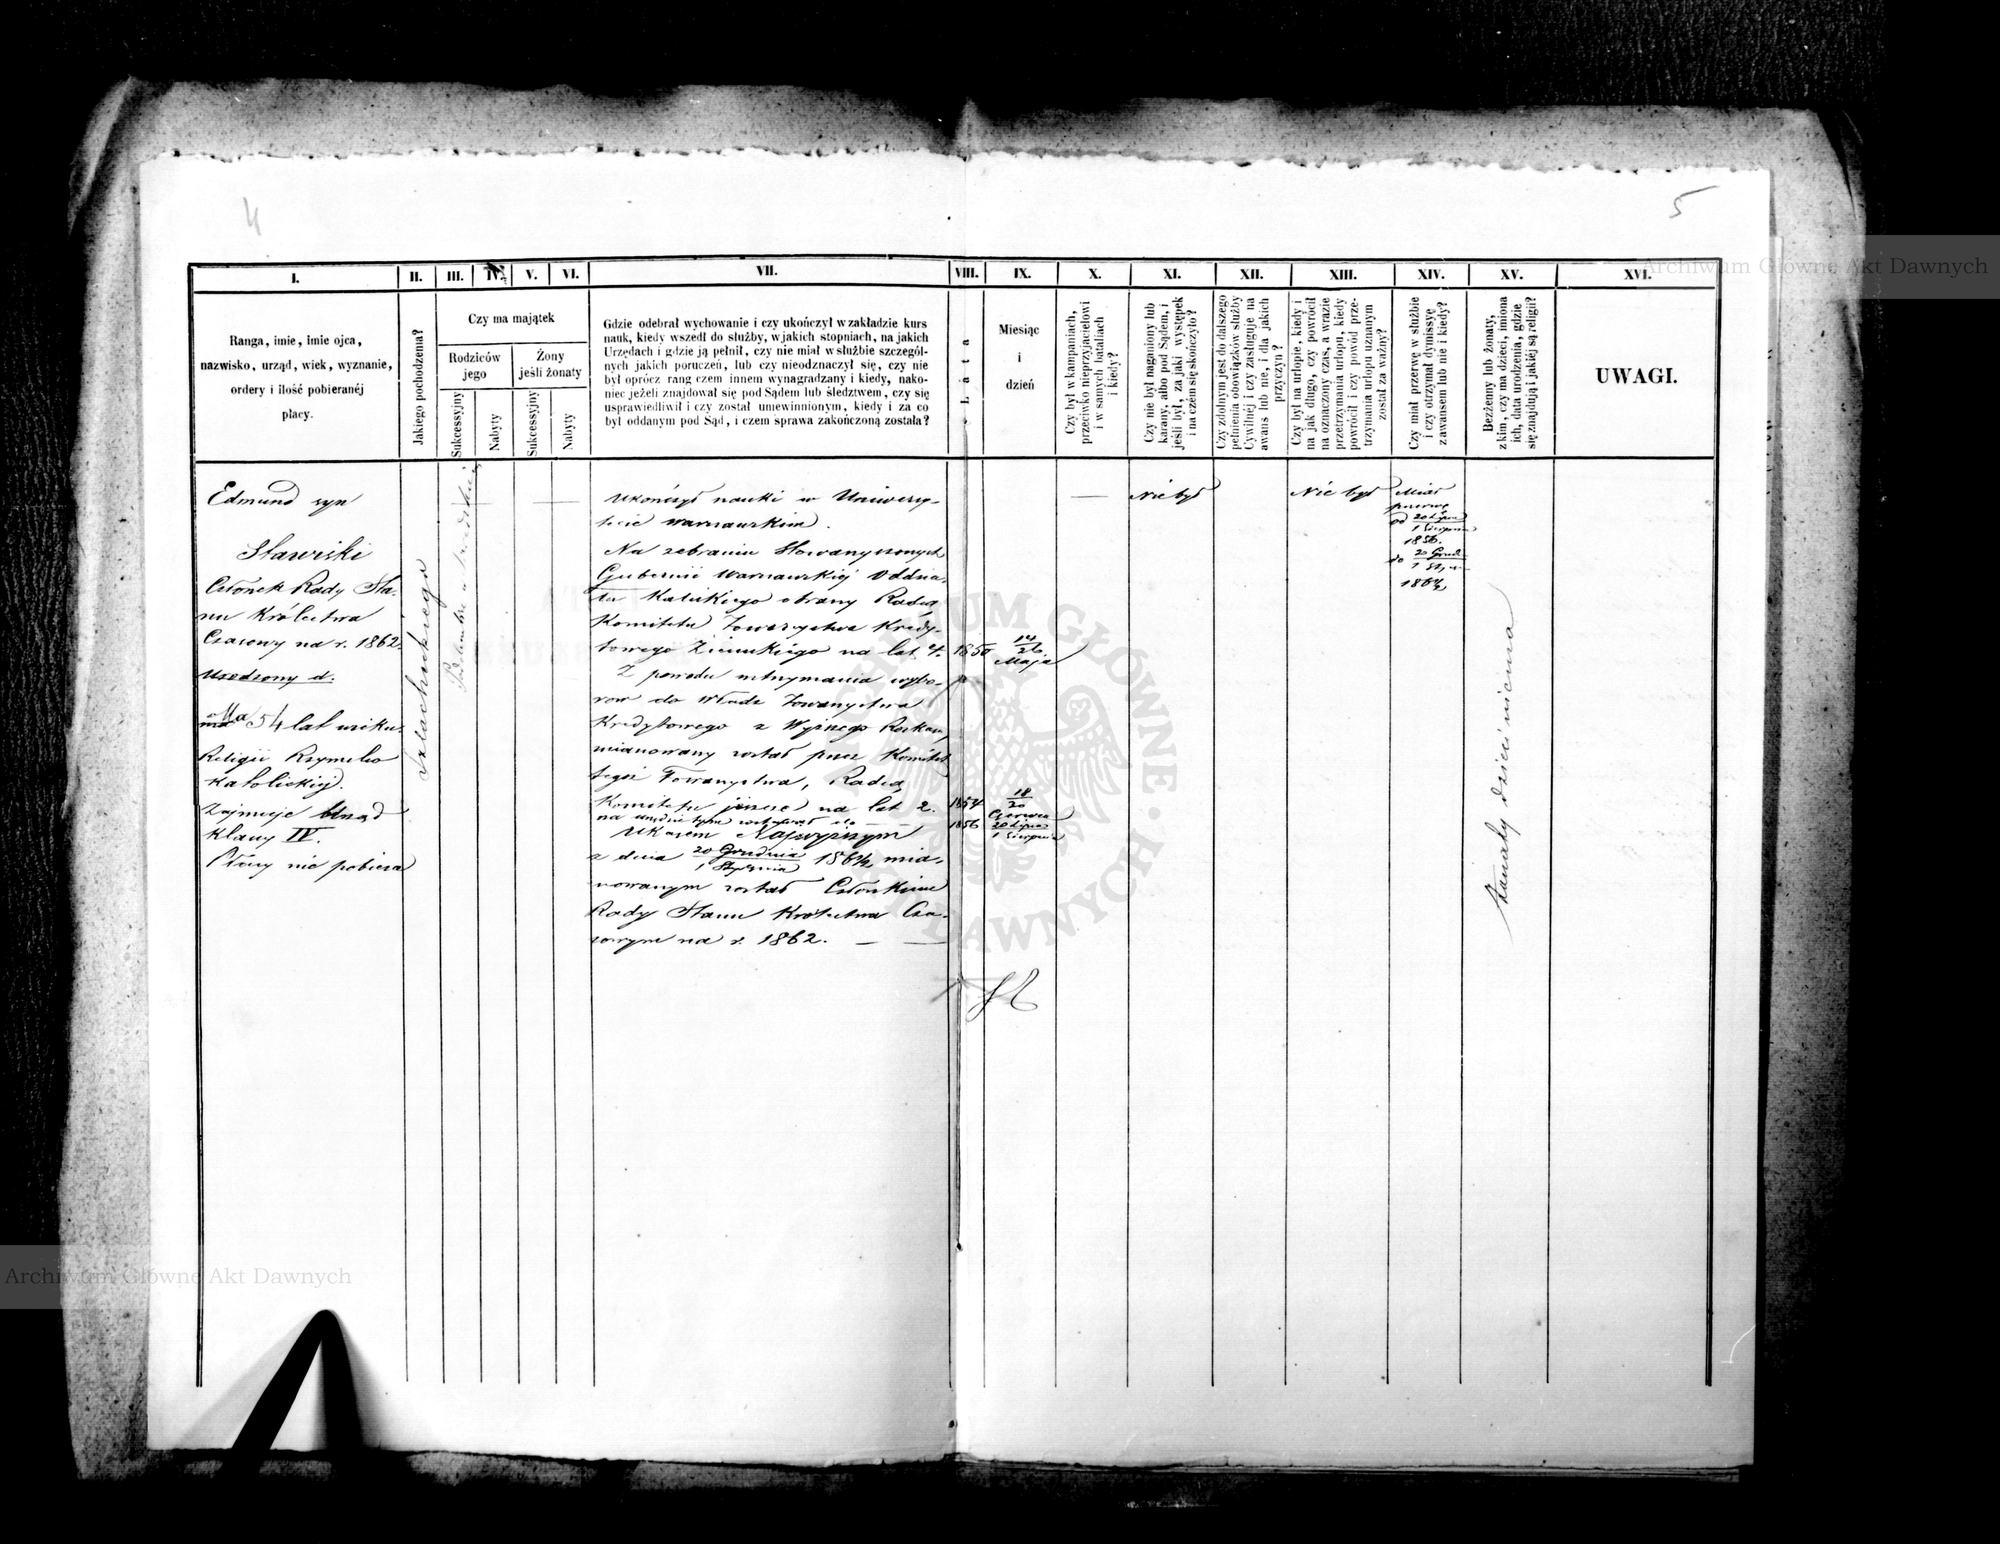 4
5
I.
II.
III.
IV.
V.
VI.
VII.
VIII.
IX.
X.
XI.
XII.
XIII.
XIV.
XV.
XVI.
Ranga, imie, imie ojca,
nazwisko, urząd, wiek, wyznanie,
ordery i ilość pobieranéj
płacy.
Jakiego pochodzenia?
Czy ma majątek
Rodziców
jego
Żony
jeśli żonaty
Sukcessyjny
Nabyty
Sukcessyjny
Nabyty
Gdzie odebrał wychowanie i czy ukończył w zakładzie kurs
nauk, kiedy wszedł do służby, w jakich stopniach, na jakich
Urzędach i gdzie ją pełnił, czy nie miał w służbie szczegól-
nych jakich poruczeń, lub czy nieodznaczył się, czy nie
był oprócz rang czem innem wynagradzany i kiedy, nako-
niec jeżeli znajdował się pod Sądem lub śledztwem, czy się
usprawiedliwił i czy został uniewinnionym, kiedy i za co
był oddanym pod Sąd, i czem sprawa zakończoną została?
Lata
Miesiąc
i
dzień
Czy był w kampaniach,
przeciwko nieprzyjacielowi
i w samych bataliach
i kiedy?
Czy nie był naganiony lub
karany, albo pod Sądem, i
jeśli był, za jaki występek
i na czém się skończyło?
Czy zdolnym jest do dalszego
pełnienia obowiązków służby
Cywilnéj i czy zasługuje na
awans lub nie, i dla jakich
przyczyn?
Czy był na urlopie, kiedy i
na jak długo, czy powrócił
na oznaczony czas, a w razie
przetrzymania urlopu, kiedy
powrócił i czy powód prze-
trzymania urlopu uznanym
został za ważny?
Czy miał przerwę w służbie
i czy otrzymał dymissyę
z awansem lub nie i kiedy?
Bezżenny lub żonaty,
z kim, czy ma dzieci, imiona
ich, data urodzenia, gdzie
się znajdują i jakiéj są religii?
UWAGI.
Edmund syn
Stawiski
Członek Rady Sta-
nu Królestwa
Czasowy na r. 1862.
Urodzony d.
Ma 54 lat wieku.
Religii Rzymsko
Katolickiej.
Zajmuje Urząd
klassy IV.
Płacy nie pobiera
Szlacheckiego
Ukończył nauki w Uniwersy-
tecie warszawskim.
Na zebraniu Stowarzyszonych
Gubernii Warszawskiej Oddzia-
łu Kaliskiego obrany Radcą
Komitetu Towarzystwa Kredy-
towego Ziemskiego na lat 4.
1850
14/26
Maja
Z powodu wstrzymania wybo-
rów do Władz Towarzystwa
Kredytowego z Wyższego Rozkazu
mianowany został przez Komitet
tegoż Towarzystwa, Radcą
Komitetu jeszcze na lat 2.
1854
18/20
Czerwca
na urzędzie tym zostawał do
1856
20 Lipca
1 Sierpnia
Ukazem Najwyższym
z dnia 20 Grudnia / 1 Stycznia 1861/2 mia-
nowanym został Członkiem
Rady Stanu Królestwa Cza-
sowym na r. 1862.
Nie był
Nie był
Miał
przerwę
od 20 Lipca
1 Sierpnia
1856.
do 20 Grud.
1 Sty.
1861/2
Żonaty dzieci niema
ARCHIWUM GŁÓWNE AKT DAWNYCH
Archiwum Główne Akt Dawnych
Archiwum Główne Akt Dawnych